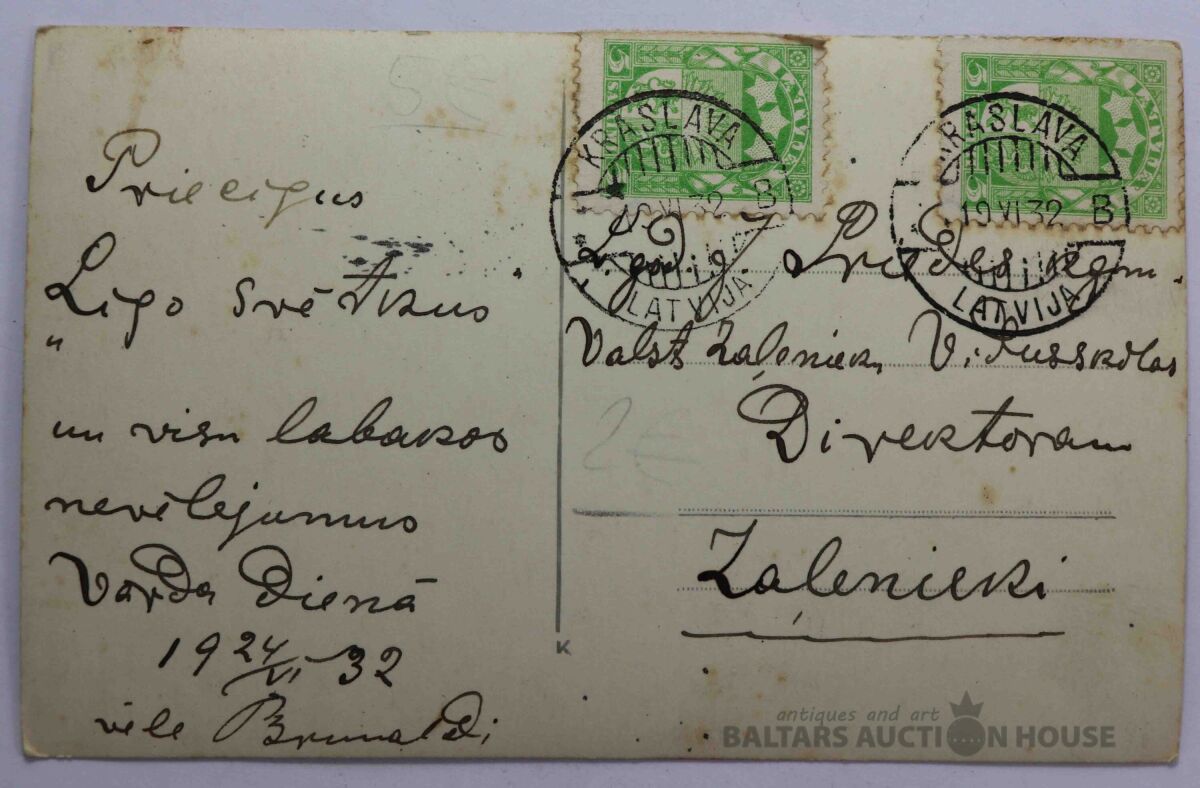 5€
Priecīgus
Līgo svētkus
un visu labakos
novēlejumus
Vārda Dienā
19 24/VI 32
vēle Brunaldi
KRASLAVA
19 VI 32 B
LATVIJA
KRASLAVA
19 VI 32 B
LATVIJA
5 LATVIJA
5 LATVIJA
L. god. J. Priedes kgm.
Valsts Zaļenieku Vidusskolas
Direktoram
2€
Zaļenieki
K
antiques and art
BALTARS AUCTION HOUSE